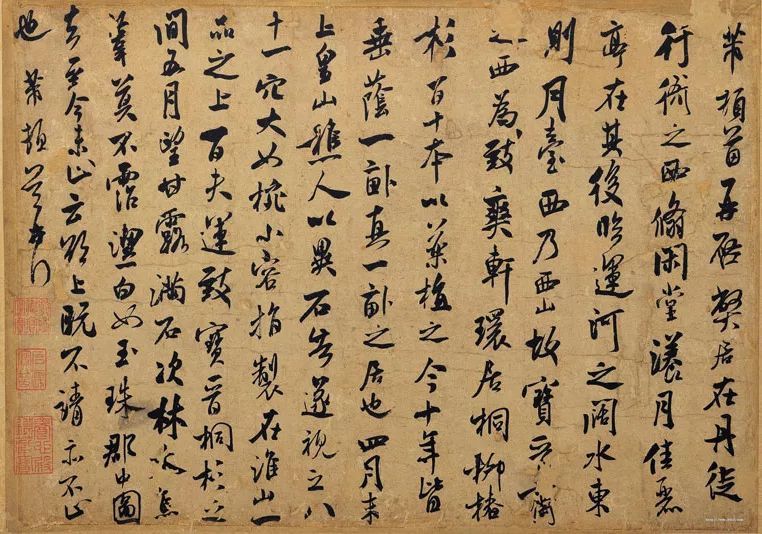 芾頓首再啓弊居在丹徒
行衙之西翛閑堂漾月佳麗
亭在其後臨運河之闊水東
則月臺西乃西山故寶晉齋
之西為致爽軒環居桐柳椿
杉百十本以藥植之今十年皆
垂蔭一畝真一畝之居也四月末
上皇山樵人以異石告遂視之八
十一穴大如椀小容指製在淮山一
品之上百夫運致寶晉桐杉之
間五月望甘露滿石次林木焦
葦莫不霑潔白如玉珠郡中圖
去至今未止云欲上既不請亦不止
也芾頓首再拜